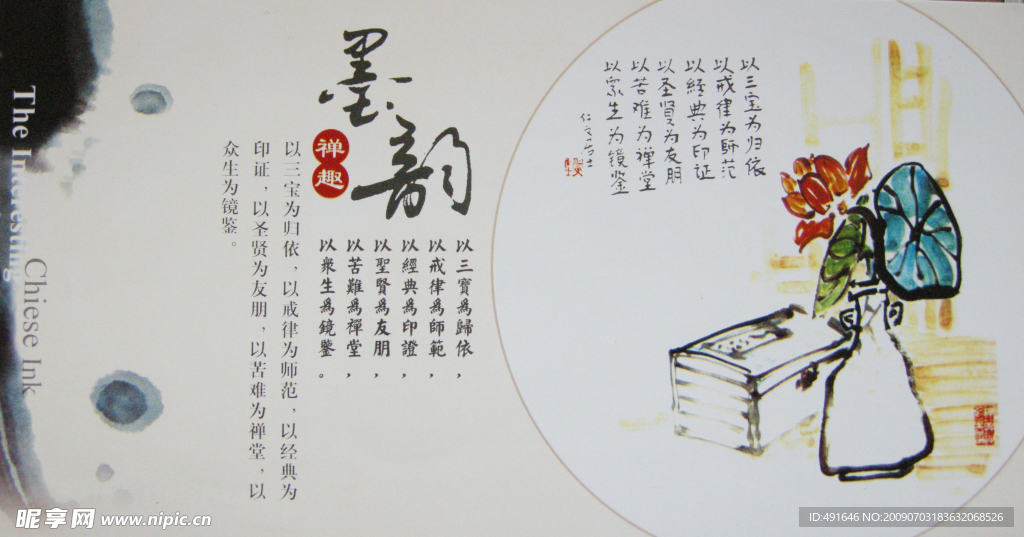 The Interesting
Chiese Ink
墨韵
禅趣
以三宝为归依，以戒律为师范，以经典为
印证，以圣贤为友朋，以苦难为禅堂，以
众生为镜鉴。
以三寶爲歸依，
以戒律爲師範，
以經典爲印證，
以聖賢爲友朋，
以苦難爲禪堂，
以衆生爲鏡鑒。
以三宝为归依
以戒律为師范
以經典为印证
以圣贤为友朋
以苦难为禅堂
以衆生为镜鉴
昵享网 www.nipic.cn
ID:491646 NO:20090703183632068526